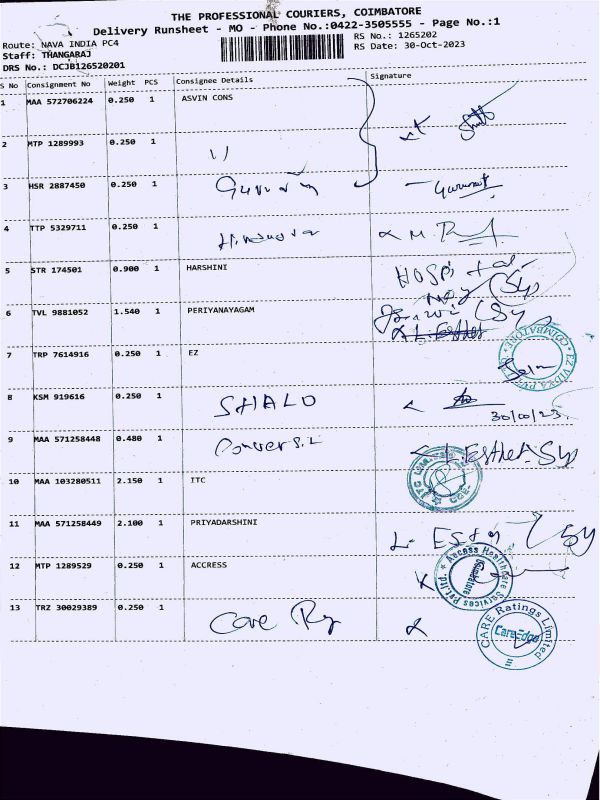 THE PROFESSIONAL COURIERS, COIMBATORE
Delivery Runsheet - MO - Phone No.:0422-3505555 - Page No.:1
Route: NAVA INDIA PC4
RS No.: 1265202
Staff: THANGARAJ
RS Date: 30-Oct-2023
DRS No.: DCJB126520201
S No Consignment No Weight PCS Consignee Details Signature
1 MAA 572706224 0.250 1 ASVIN CONS
2 MTP 1289993 0.250 1 11
3 HSR 2887450 0.250 1
4 TTP 5329711 0.250 1
5 STR 174501 0.900 1 HARSHINI Hospital
6 TVL 9881052 1.540 1 PERIYANAYAGAM
7 TRP 7614916 0.250 1 EZ
8 KSM 919616 0.250 1 SHALO
30/10/23
9 MAA 571258448 0.480 1 L. Esther
10 MAA 103280511 2.150 1 ITC
11 MAA 571258449 2.100 1 PRIYADARSHINI
12 MTP 1289529 0.250 1 ACCRESS Access Healthcare Services Pvt.ltd. Coimbatore
13 TRZ 30029389 0.250 1 Care CARE Ratings Limited CareEdge